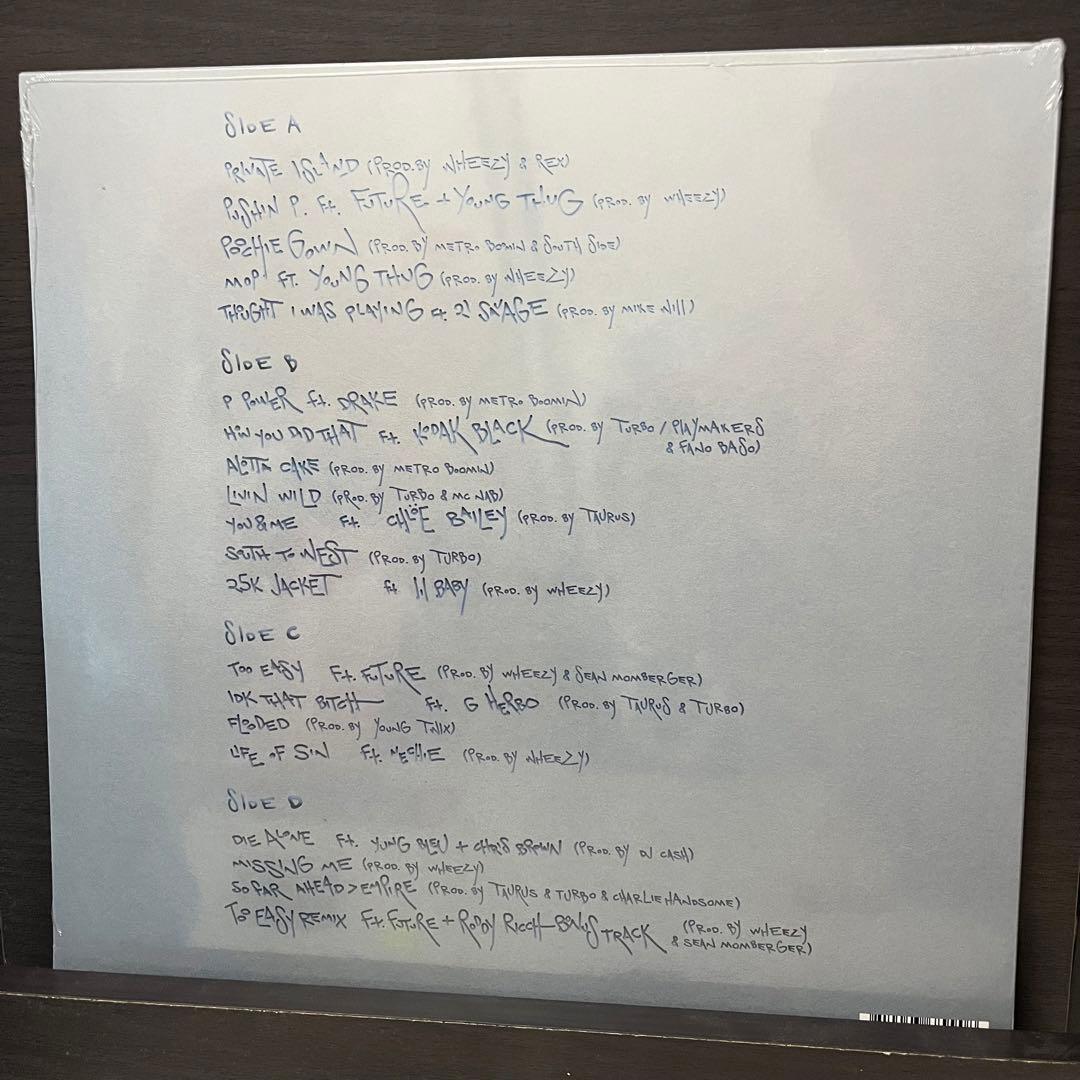 SIDE A
PRIVATE ISLAND (PROD. BY WHEEZY & REX)
PUSHIN P. Ft. FUTURE + YOUNG THUG (PROD. BY WHEEZY)
POOCHIE GOWN (PROD. BY METRO BOMIN & SOUTH SIDE)
MOP FT. YOUNG THUG (PROD. BY WHEEZY)
THOUGHT I WAS PLAYING ft. 21 SAVAGE (PROD. BY MIKE WILL)
SIDE B
P POWER ft. DRAKE (PROD. BY METRO BOOMIN)
HOW YOU DID THAT Ft. KODAK BLACK (PROD. BY TURBO / PLAYMAKERS
& FANO BASO)
ALOTTA CAKE (PROD. BY METRO BOOMIN)
LIVIN WILD (PROD. BY TURBO & MC NAB)
YOU & ME Ft. CHLÖE BAILEY (PROD. BY TAURUS)
SOUTH TO WEST (PROD. BY TURBO)
25K JACKET ft lil BABY (PROD. BY WHEEZY)
SIDE C
TOO EASY Ft. FUTURE (PROD. BY WHEEZY & SEAN MOMBERGER)
IDK THAT BITCH Ft. G HERBO (PROD. BY TAURUS & TURBO)
FLOODED (PROD. BY YOUNG TWIX)
LIFE OF SIN ft. NECHIE (PROD. BY WHEEZY)
SIDE D
DIE ALONE Ft. YUNG BLEU + CHRIS BROWN (PROD. BY DJ CASH)
MISSING ME (PROD. BY WHEEZY)
SO FAR AHEAD > EMPIRE (PROD. BY TAURUS & TURBO & CHARLIE HANDSOME)
TOO EASY REMIX Ft. FUTURE + RODDY RICCH - BONUS TRACK (PROD. BY WHEEZY
& SEAN MOMBERGER)